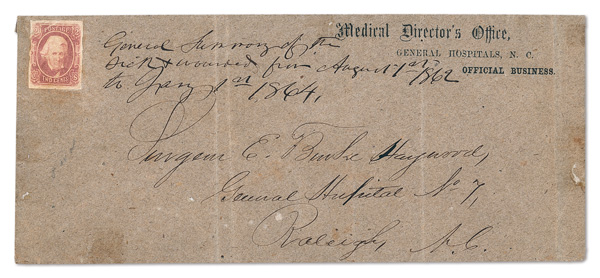 Medical Director's Office,
GENERAL HOSPITALS, N. C.
OFFICIAL BUSINESS.
General Summory of the
Sick & wounded from August 1st 1862
to Jany 1st 1864,
TWO CENTS
Surgeon E. Burke Haywood,
General Hospital No 7,
Raleigh, N.C.